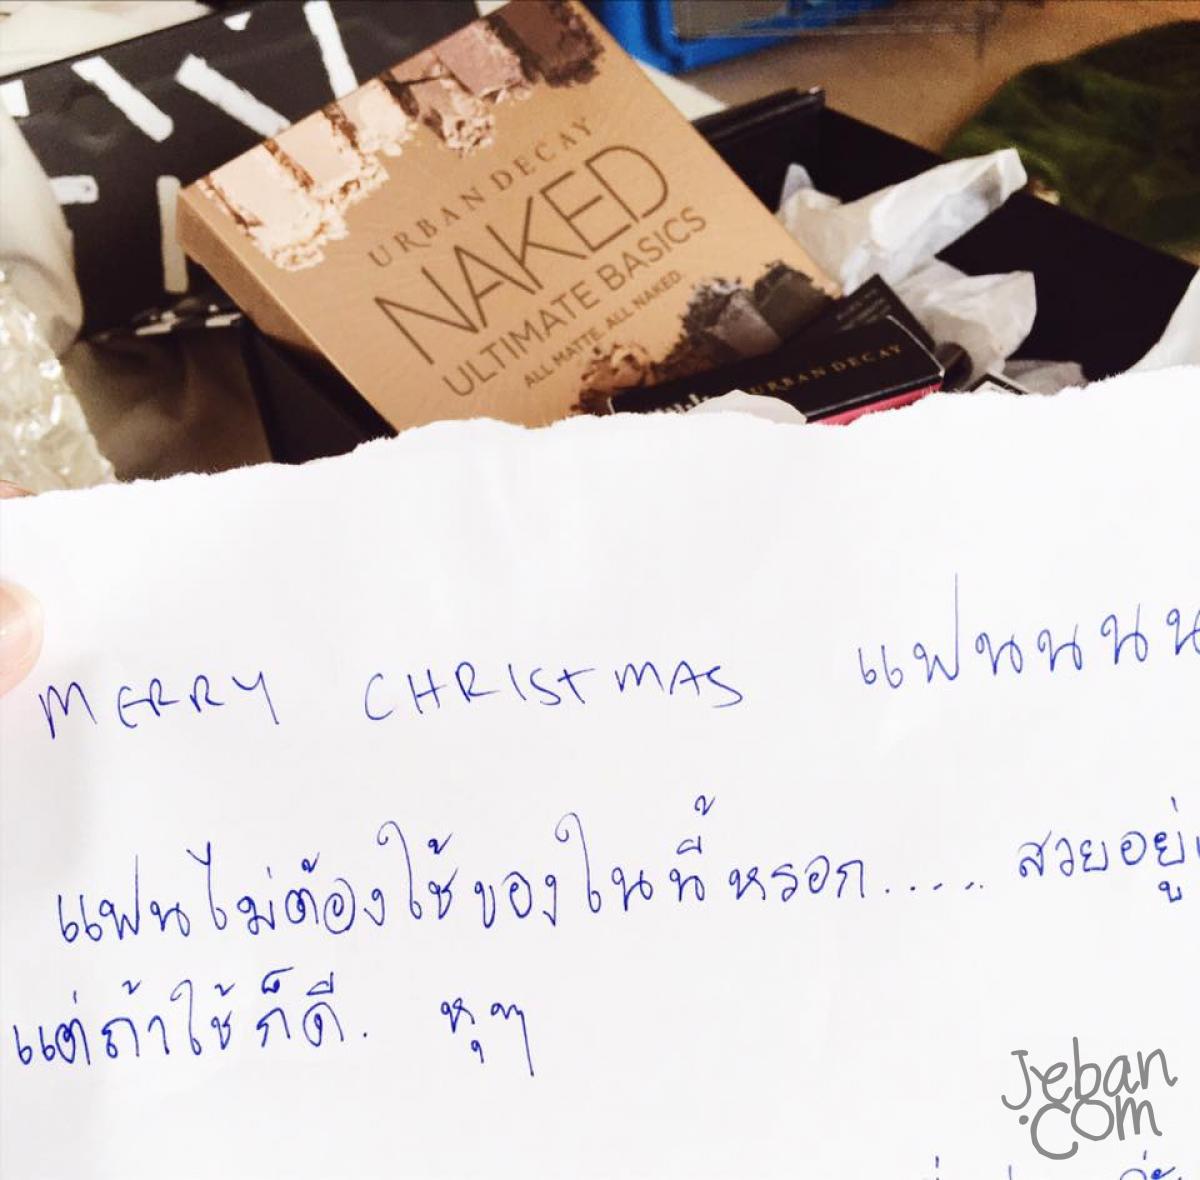 URBAN DECAY
NAKED
ULTIMATE BASICS
ALL MATTE. ALL NAKED.
URBAN DECAY
MERRY CHRISTMAS แฟนนนน
แฟนไม่ต้องใช้ของในนี้หรอก..... สวยอยู่
แต่ถ้าใช้ก็ดี. หุๆ
Jeban
.com